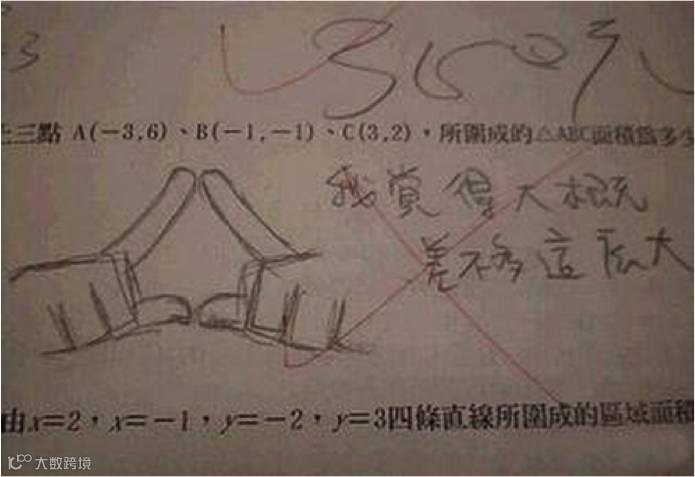 -3
上三點 A(-3,6)、B(-1,-1)、C(3,2)，所圍成的△ABC面積為多少
我覺得大概
差不多這麼大
由x=2，x=-1，y=-2，y=3四條直線所圍成的區域面積
大数跨境